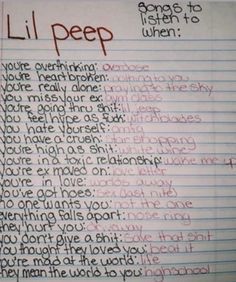 Lil peep
songs to
listen to
when:
you're overthinking: overdose
you're heartbroken: nothing to you
you're really alone: praying to the sky
you miss your ex: gym class
you're going thru shit: lil jeep
you feel hype as fuck: witchblades
you hate yourself: omfg
you have a crush: star shopping
you're high as shit: white wine
you're in a toxic relationship: wake me up
you're ex moved on: love letter
you're in love: worlds away
you've got hoes: (last nite)
no one wants you: not the one
everything falls apart: nose ring
they hurt you: away
you don't give a shit: save that shit
you thought they loved you: beat it
you're mad at the world: life
they mean the world to you: highschool